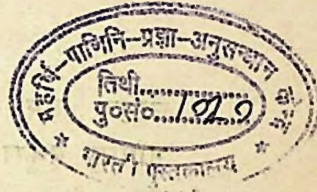 महर्षि-पाणिनि-प्रज्ञा-अनुसन्धान केन्द्र
तिथी..............
पु०सं०..............
* भारती पुस्तकालय *